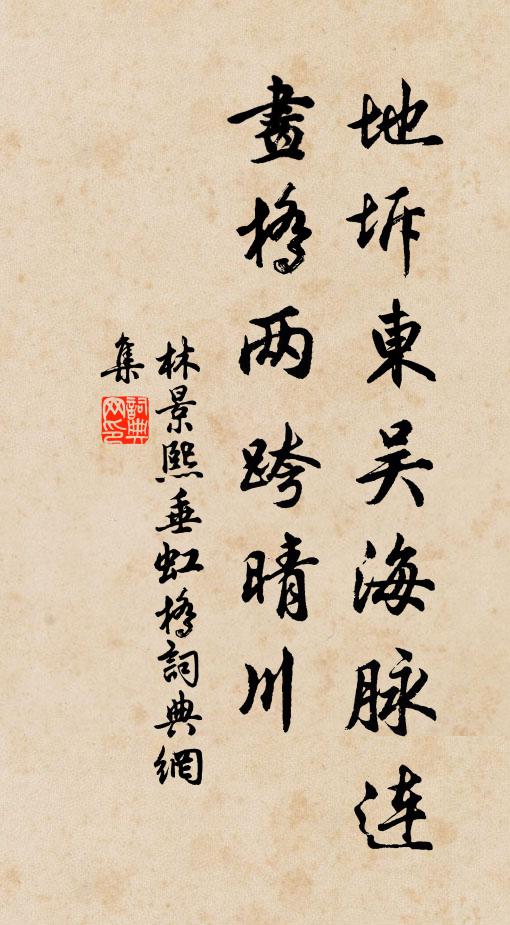 地坼東吴海脉连
畫橋两跨晴川
林景熙垂虹橋詞典網
集
詞典網印